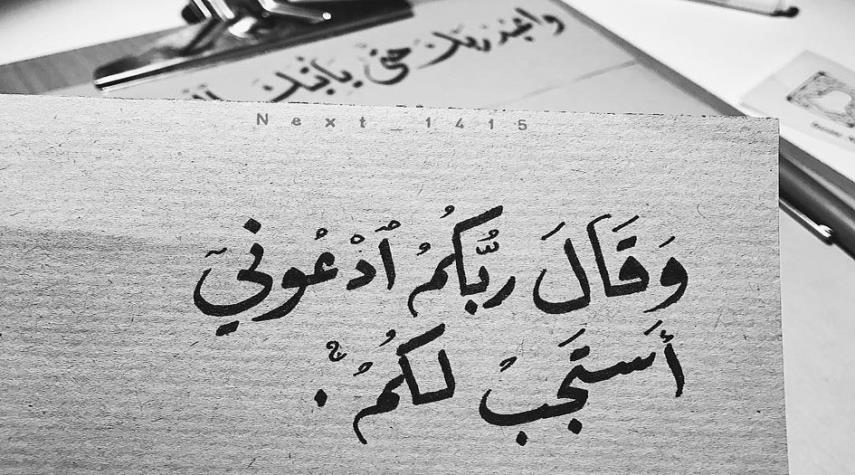 واعبد ربك حتىٰ يأتيك
Next_1415
وَقَالَ رَبُّكُمُ ٱدْعُونِيٓ
أَستَجِبْ لَكُمُ